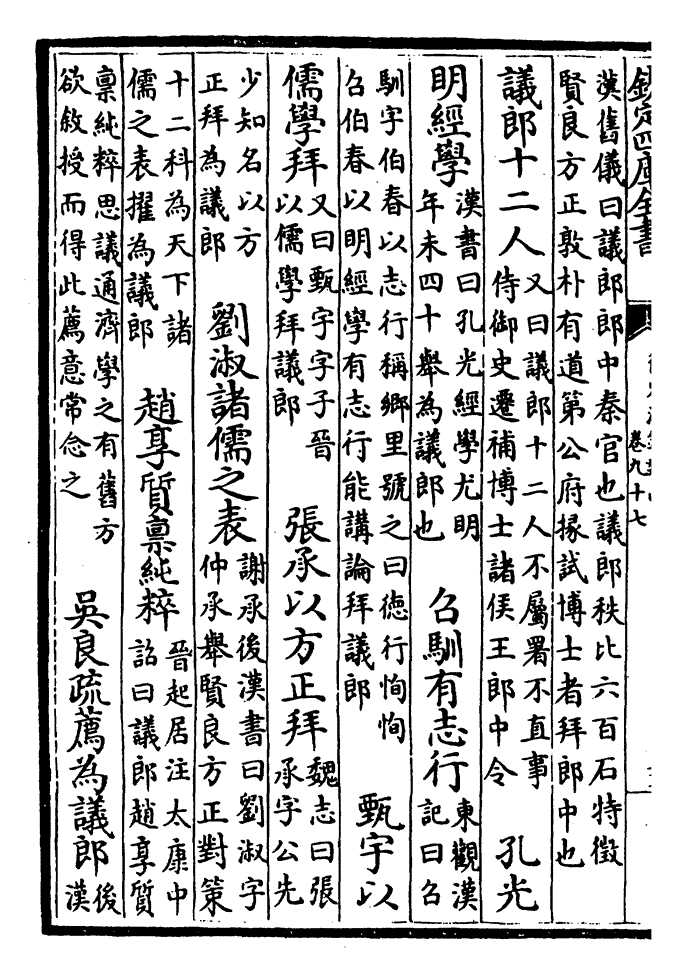 欽定四庫全書
卷九十七
漢舊儀曰議郎郎中秦官也議郎秩比六百石特徵
賢良方正敦朴有道第公府掾試博士者拜郎中也
議郎十二人
又曰議郎十二人不屬署不直事
侍御史遷補博士諸侯王郎中令
孔光
明經學
漢書曰孔光經學尤明
年未四十舉為議郎也
召馴有志行
東觀漢
記曰召
馴字伯春以志行稱鄉里號之曰德行恂恂
召伯春以明經學有志行能講論拜議郎
甄宇以
儒學拜
又曰甄宇字子晉
以儒學拜議郎
張承以方正拜
魏志曰張
承字公先
少知名以方
正拜為議郎
劉淑諸儒之表
謝承後漢書曰劉淑字
仲承舉賢良方正對策
十二科為天下諸
儒之表擢為議郎
趙享質稟純粹
晉起居注太康中
詔曰議郎趙享質
稟純粹思議通濟學之有舊方
欲敘授而得此薦意常念之
吳良疏薦為議郎
後
漢